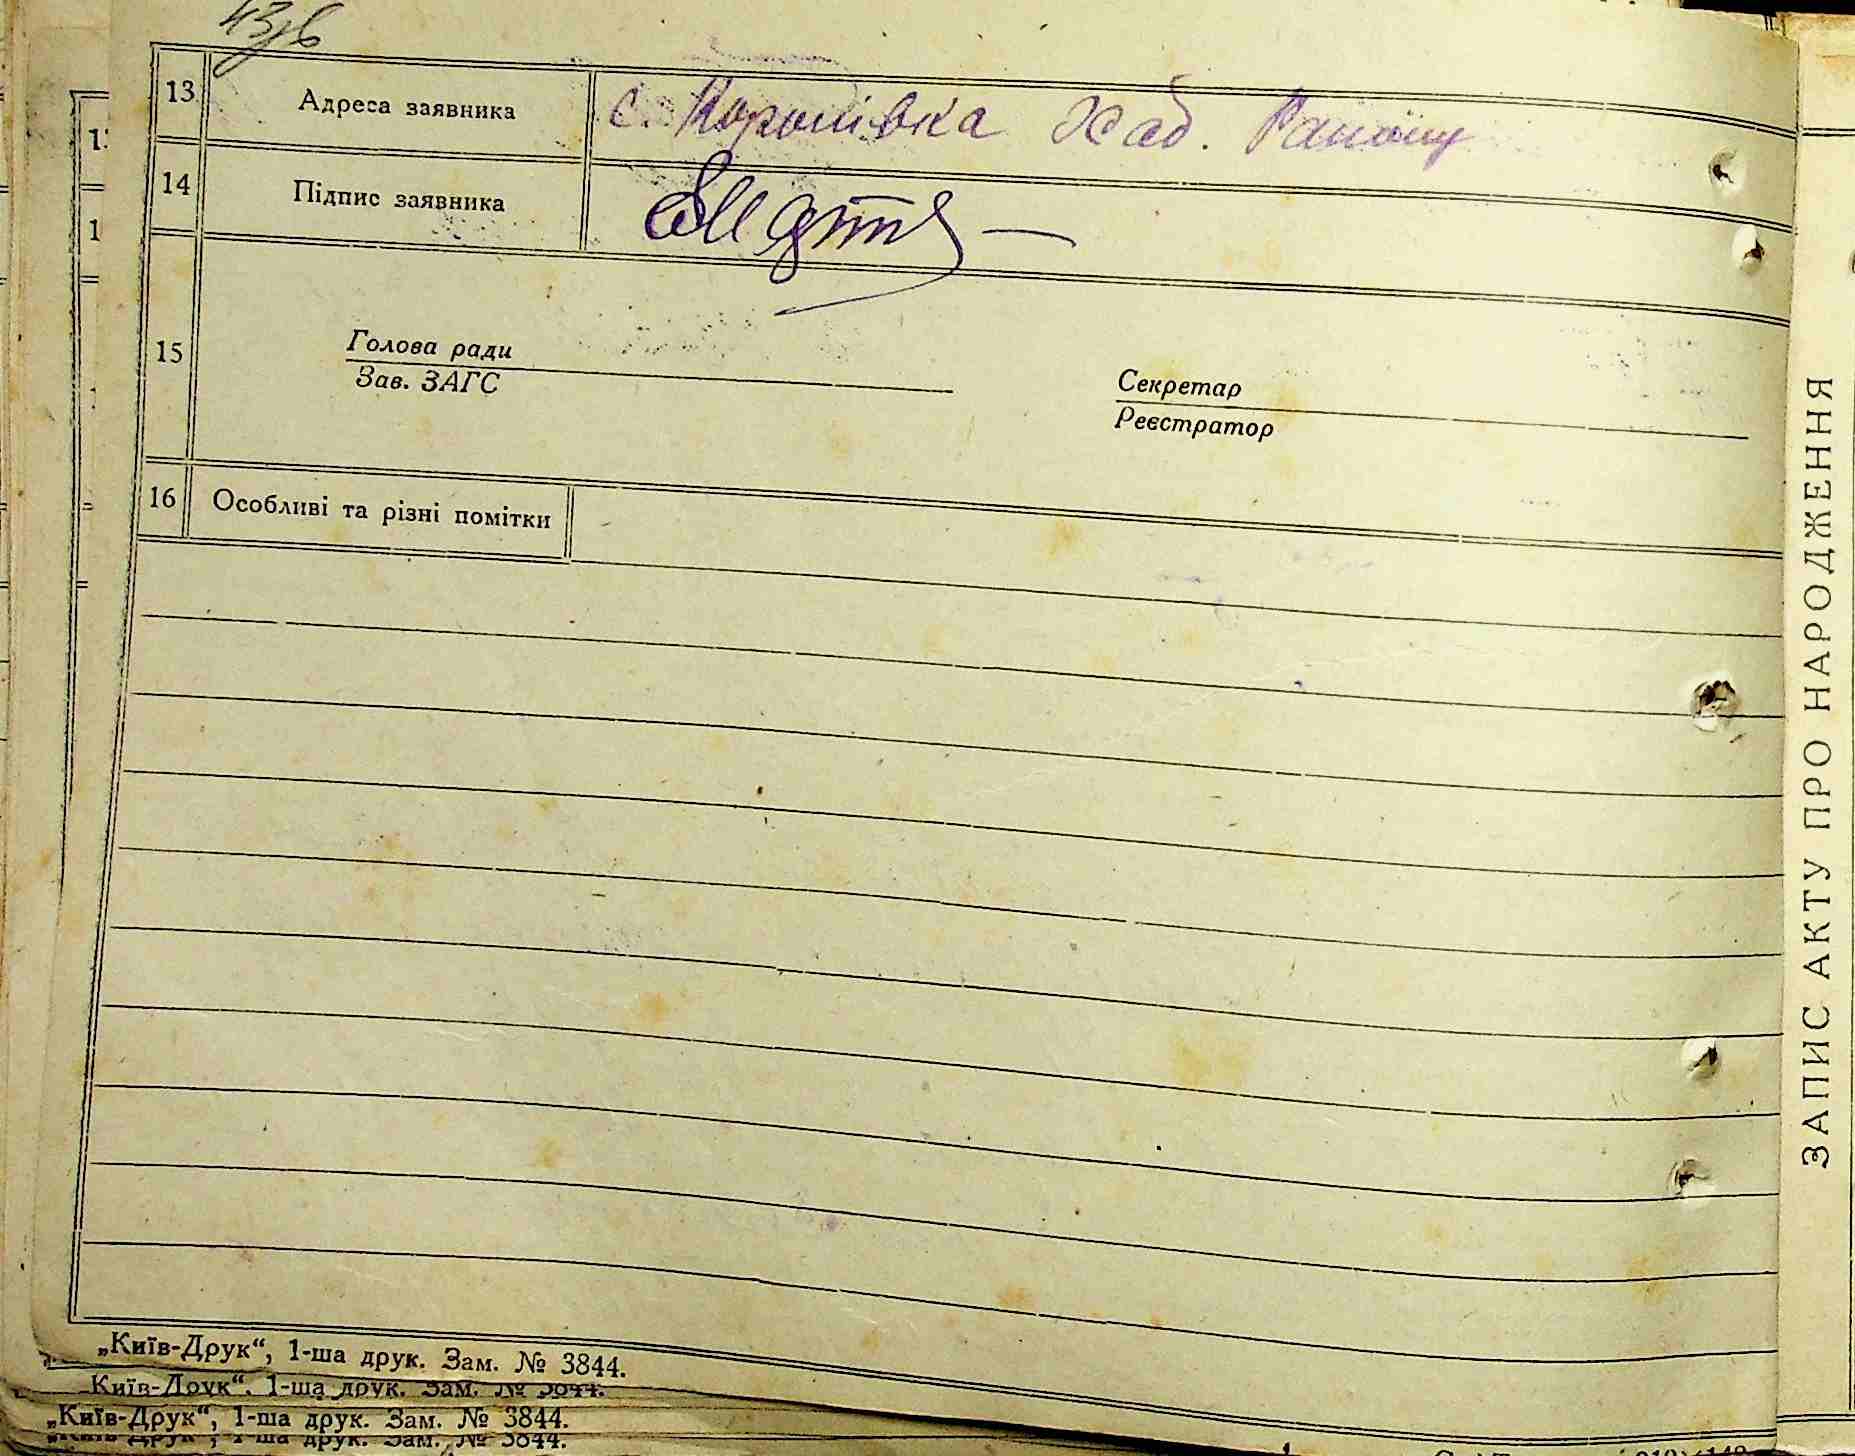 43зв
13 Адреса заявника с. Королівка Хаб. Району
14 Підпис заявника
15 Голова ради
Зав. ЗАГС
Секретар
Реєстратор
16 Особливі та різні помітки
„Київ-Друк“, 1-ша друк. Зам. № 3844.
„Київ-Друк“, 1-ша друк. Зам. № 3844.
„Київ-Друк“, 1-ша друк. Зам. № 3844.
„Київ-Друк“, 1-ша друк. Зам. № 3844.
ЗАПИС АКТУ ПРО НАРОДЖЕННЯ